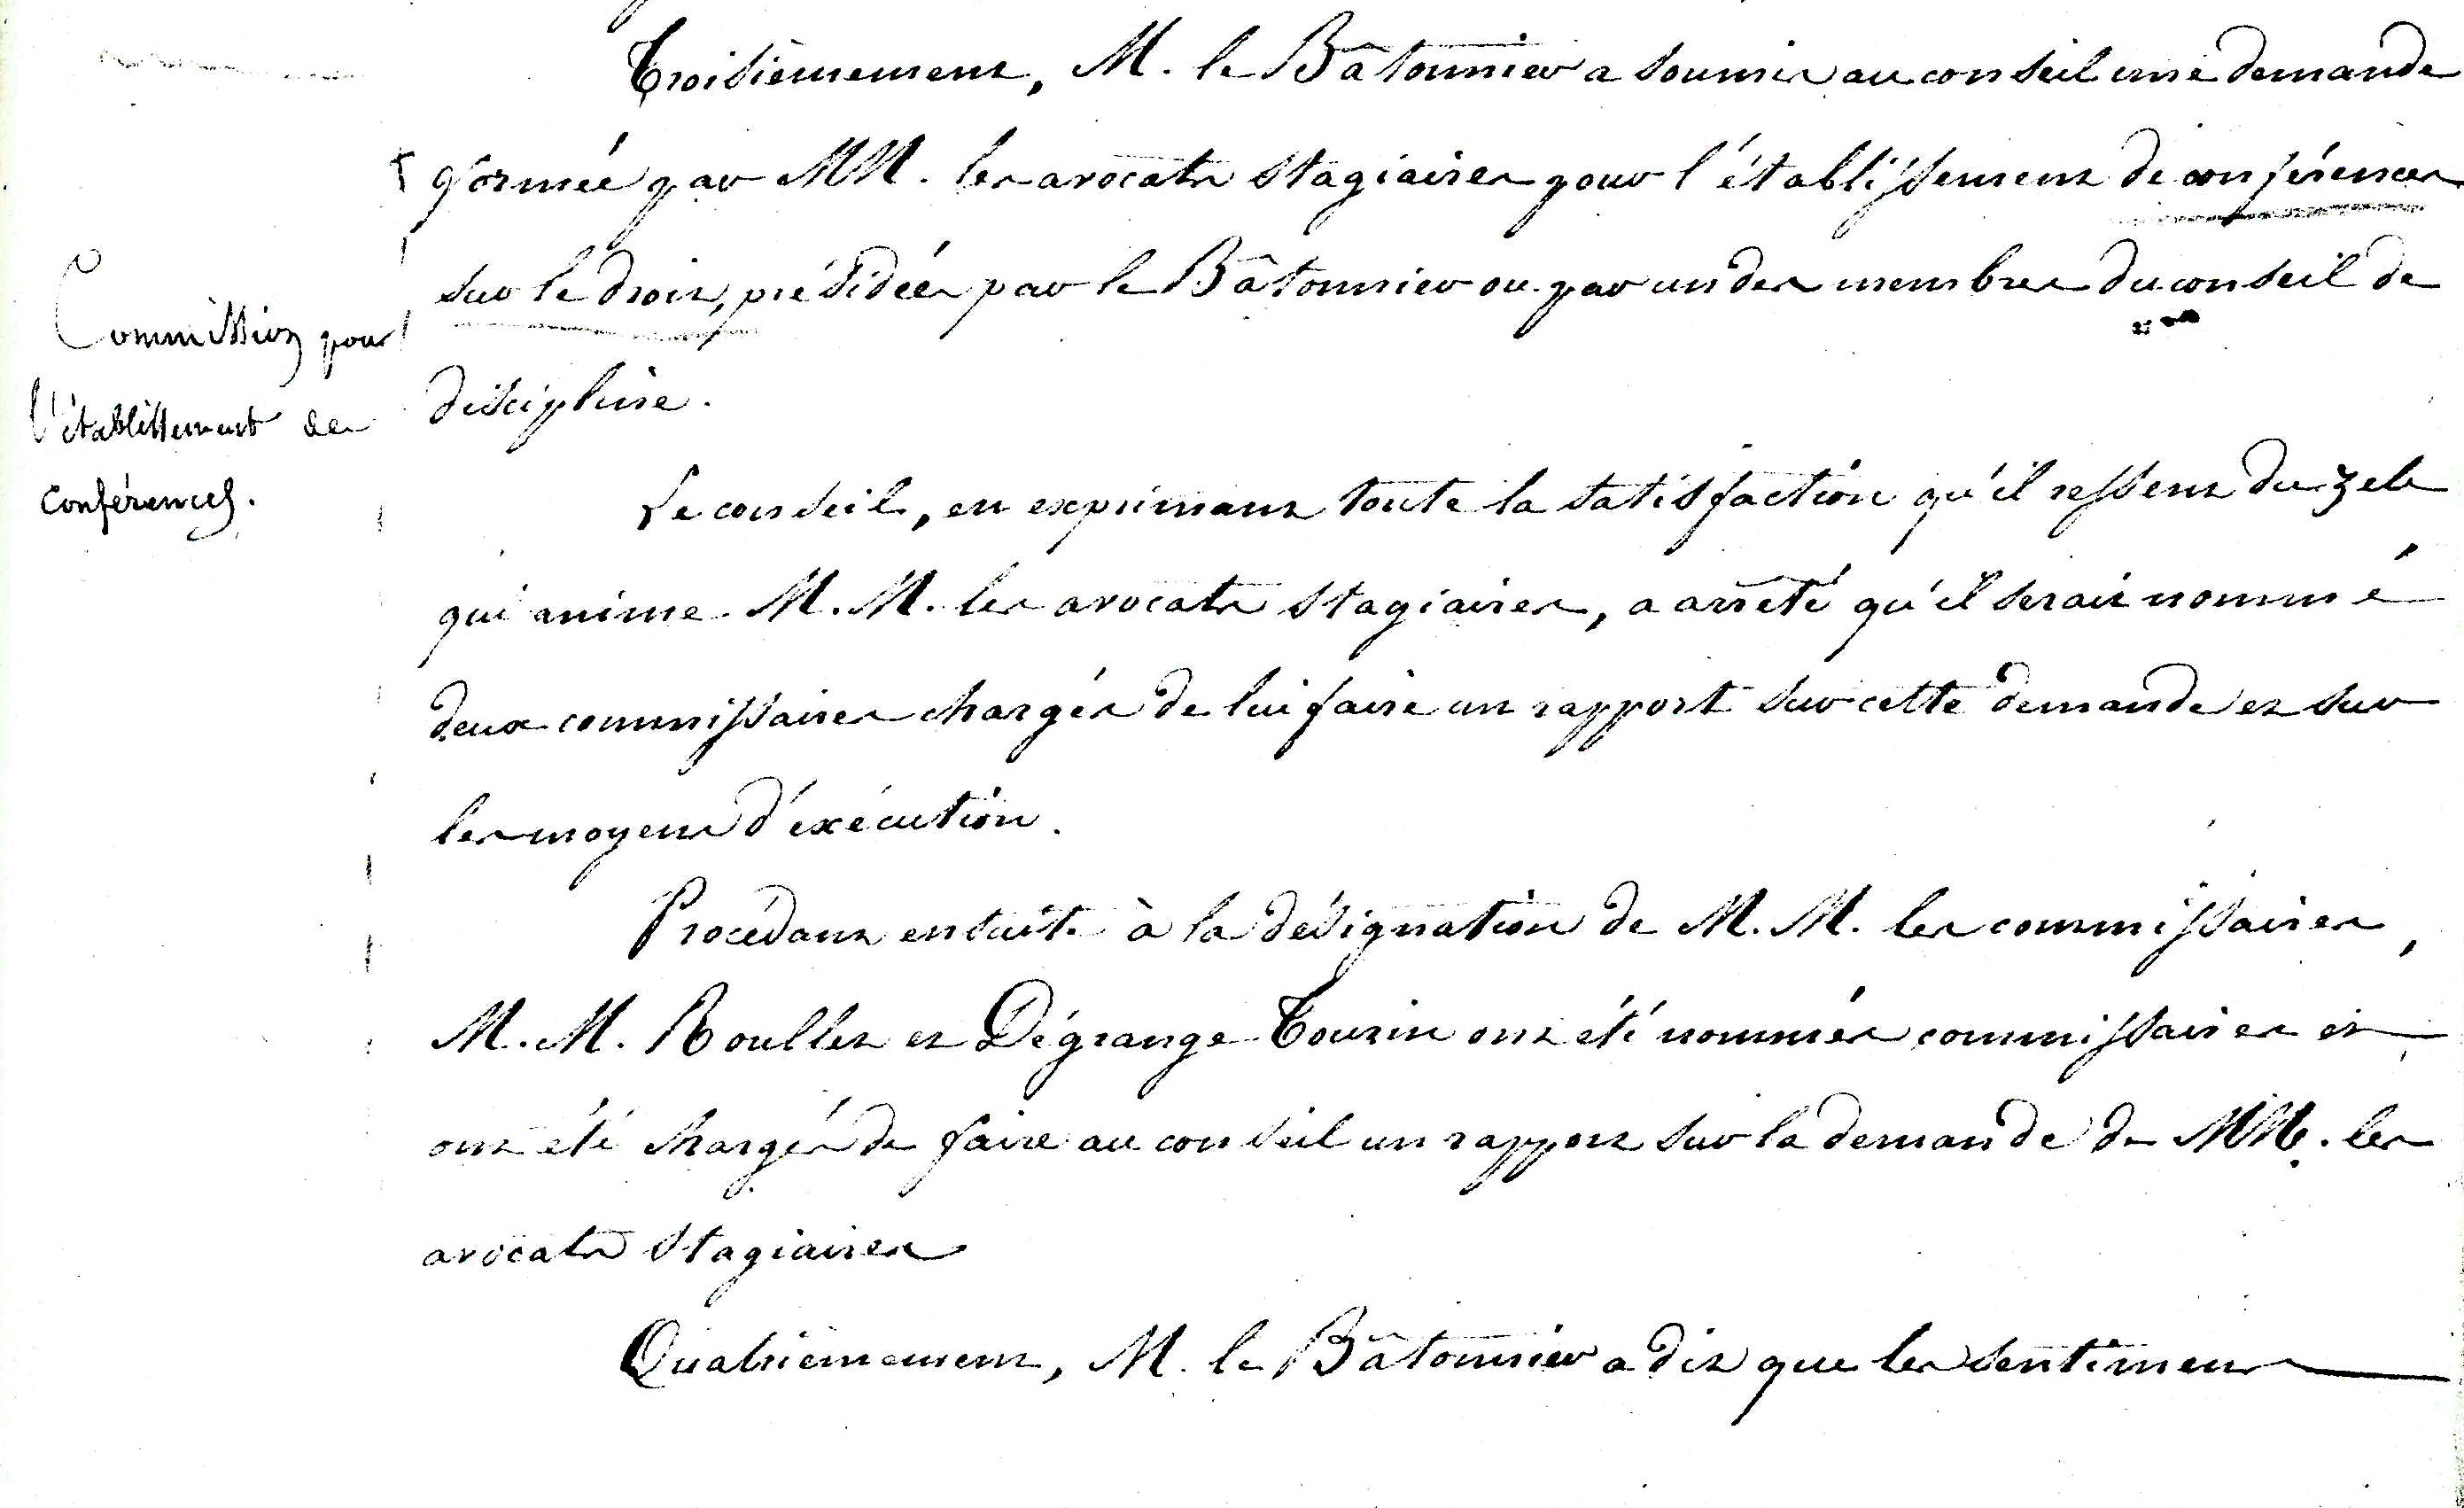 Troisièmement, M. le Bâtonnier a soumis au conseil une demande
formée par MM. les avocats stagiaires pour l'établissement de conférences
sur le droit, présidées par le Bâtonnier ou par un des membres du conseil de
discipline.
Commission pour
l'établissement des
conférences.
Le conseil, en exprimant toute la satisfaction qu'il ressent du zele
qui anime M. M. les avocats stagiaires, a arrêté qu'il serait nommé
deux commissaires chargés de lui faire un rapport sur cette demande et sur
les moyens d'exécution.
Procédant ensuite à la désignation de M. M. les commissaires,
M. M. Roullet et Dégrange-Tourin ont été nommés commissaires et
ont été chargés de faire au conseil un rapport sur la demande de MM. les
avocats stagiaires
Quatrièmement, M. le Bâtonnier a dit que les sentimens